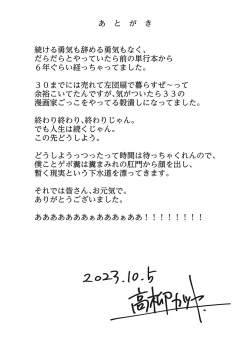 あとがき
続ける勇気も辞める勇気もなく、
だらだらとやっていたら前の単行本から
６年ぐらい経っちゃってました。
３０までには売れて左団扇で暮らすぜ～って
余裕こいてたんですが、気がついたら３３の
漫画家ごっこをやってる穀潰しになってました。
終わり終わり、終わりじゃん。
でも人生は続くじゃん。
この先どうしよう。
どうしようっつったって時間は待っちゃくれんので、
僕ことゲボ糞は糞まみれの肛門から顔を出し、
暫く現実という下水道を漂ってきます。
それでは皆さん、お元気で。
ありがとうございました。
ああああああぁぁあああぁああ！！！！！！！！
2023.10.5
高柳カツヤ